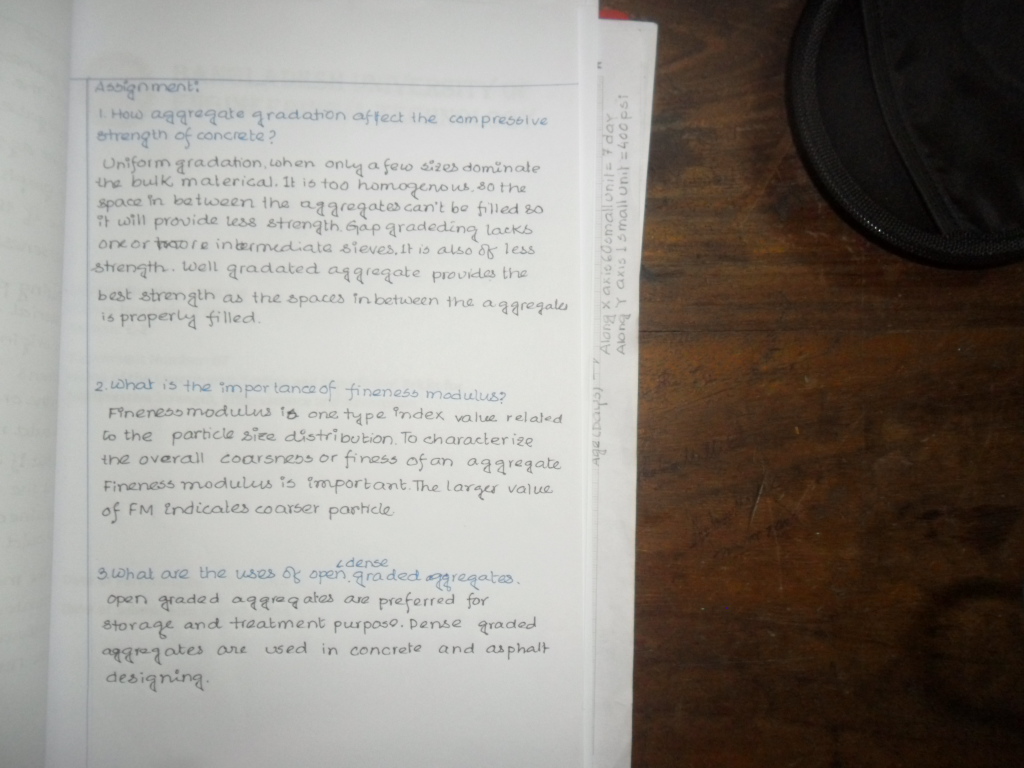 Assignment:
1. How aggregate gradation affect the compressive
strength of concrete?
Uniform gradation, when only a few sizes dominate
the bulk materical. It is too homogenous. so the
space in between the aggregates can't be filled so
it will provide less strength. Gap gradeding lacks
one or more intermediate sieves. It is also of less
strength. Well gradated aggregate provides the
best strength as the spaces inbetween the aggregates
is properly filled.
2. What is the importance of fineness modulus?
Fineness modulus is one type index value related
to the particle size distribution. To characterize
the overall coarsness or finess of an aggregate
Fineness modulus is important. The larger value
of FM indicales coarser particle
&dense
3. What are the uses of open graded aggregates.
Open graded aggregates are preferred for
storage and treatment purpose. Dense graded
aggregates are used in concrete and asphalt
designing.
Along X axis 60 small unit = 7 day
Along Y axis 1 small unit = 400 psi
Age (Days)